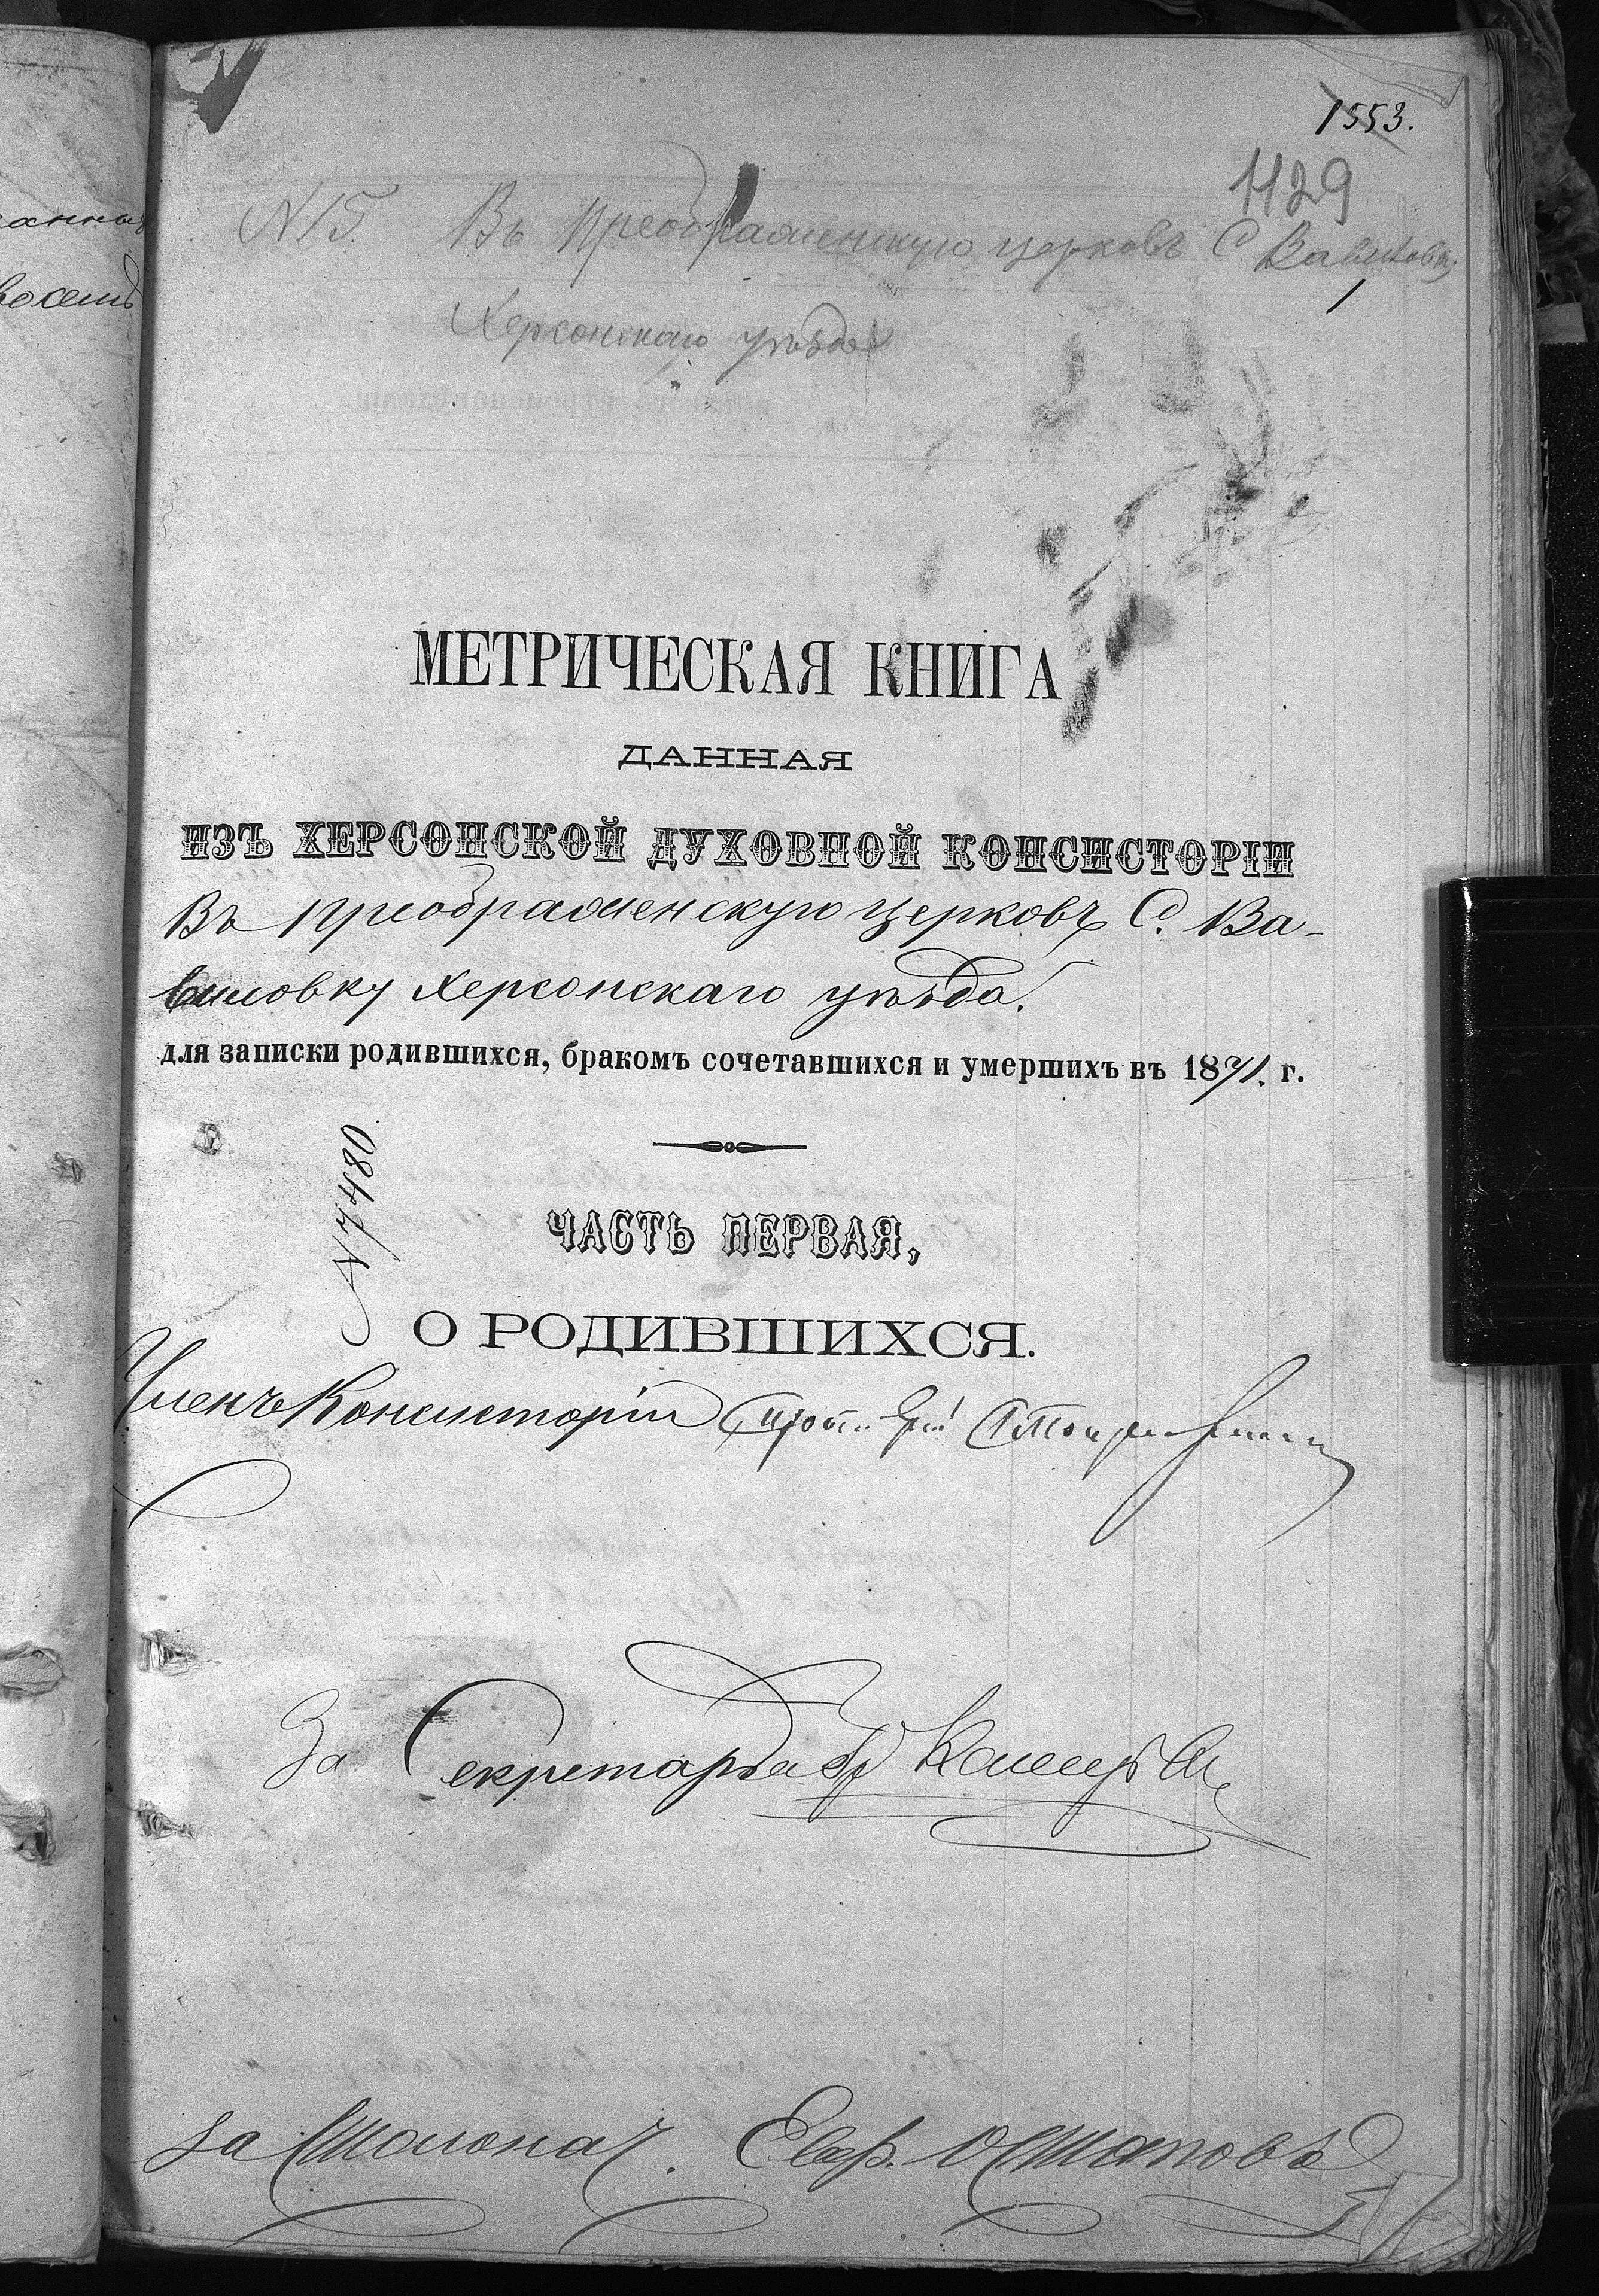 1553.
1129
№ 15. Въ Преображенскую церковь С. Вавиловку
1
Херсонскаго уѣзда
анны
восемь
МЕТРИЧЕСКАЯ КНИГА
ДАННАЯ
ИЗЪ ХЕРСОНСКОЙ ДУХОВНОЙ КОНСИСТОРІИ
Въ Преображенскую церковь С. Ва-
виловку Херсонскаго уѣзда.
для записки родившихся, бракомъ сочетавшихся и умершихъ въ 1871. г.
№ 7480.
ЧАСТЬ ПЕРВАЯ,
О РОДИВШИХСЯ.
Членъ Консисторіи
За Секретаря
За Столонач. Евф. Остаповъ